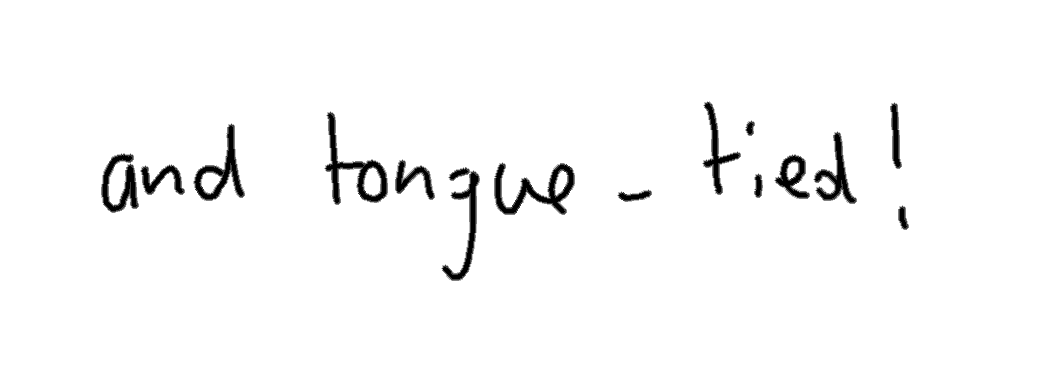 and tongue-tied!